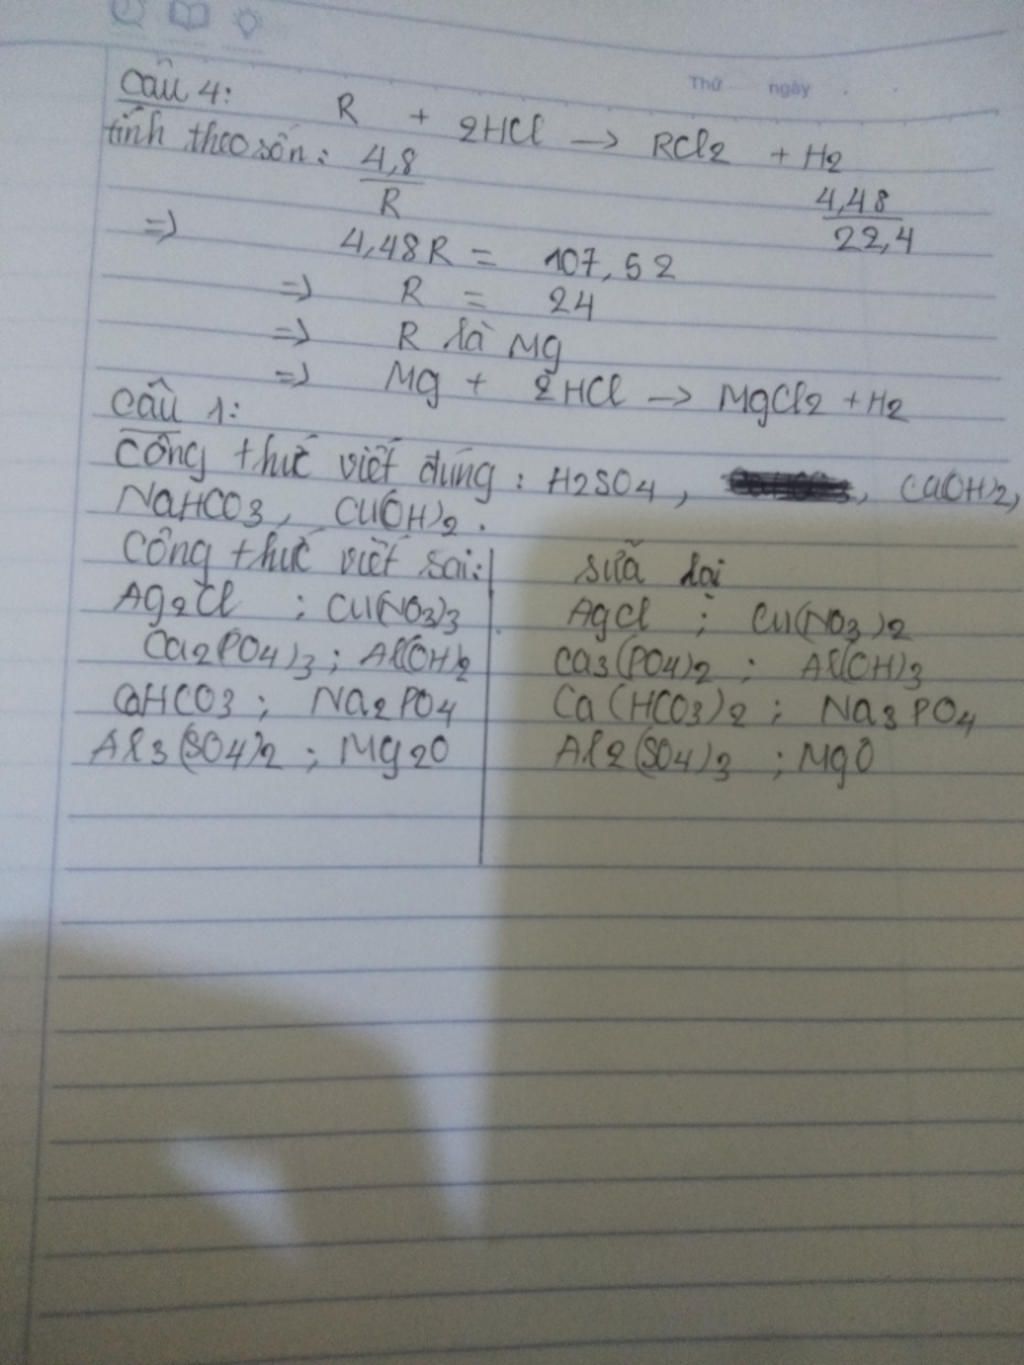 Thứ ngày
Câu 4: R + 2HCl → RCl2 + H2
tính theo số n: 4,8/R 4,48/22,4
=> 4,48R = 107,52
=> R = 24
=> R là Mg
=> Mg + 2HCl → MgCl2 + H2
Câu 1:
Công thức viết đúng: H2SO4, , Ca(OH)2,
NaHCO3, Cu(OH)2.
Công thức viết sai: sửa lại
Ag2Cl ; Cu(NO3)3 AgCl ; Cu(NO3)2
Ca2PO4)3 ; Al(OH)2 Ca3(PO4)2 ; Al(OH)3
CaHCO3 ; Na2PO4 Ca(HCO3)2 ; Na3PO4
Al3(SO4)2 ; Mg2O Al2(SO4)3 ; MgO